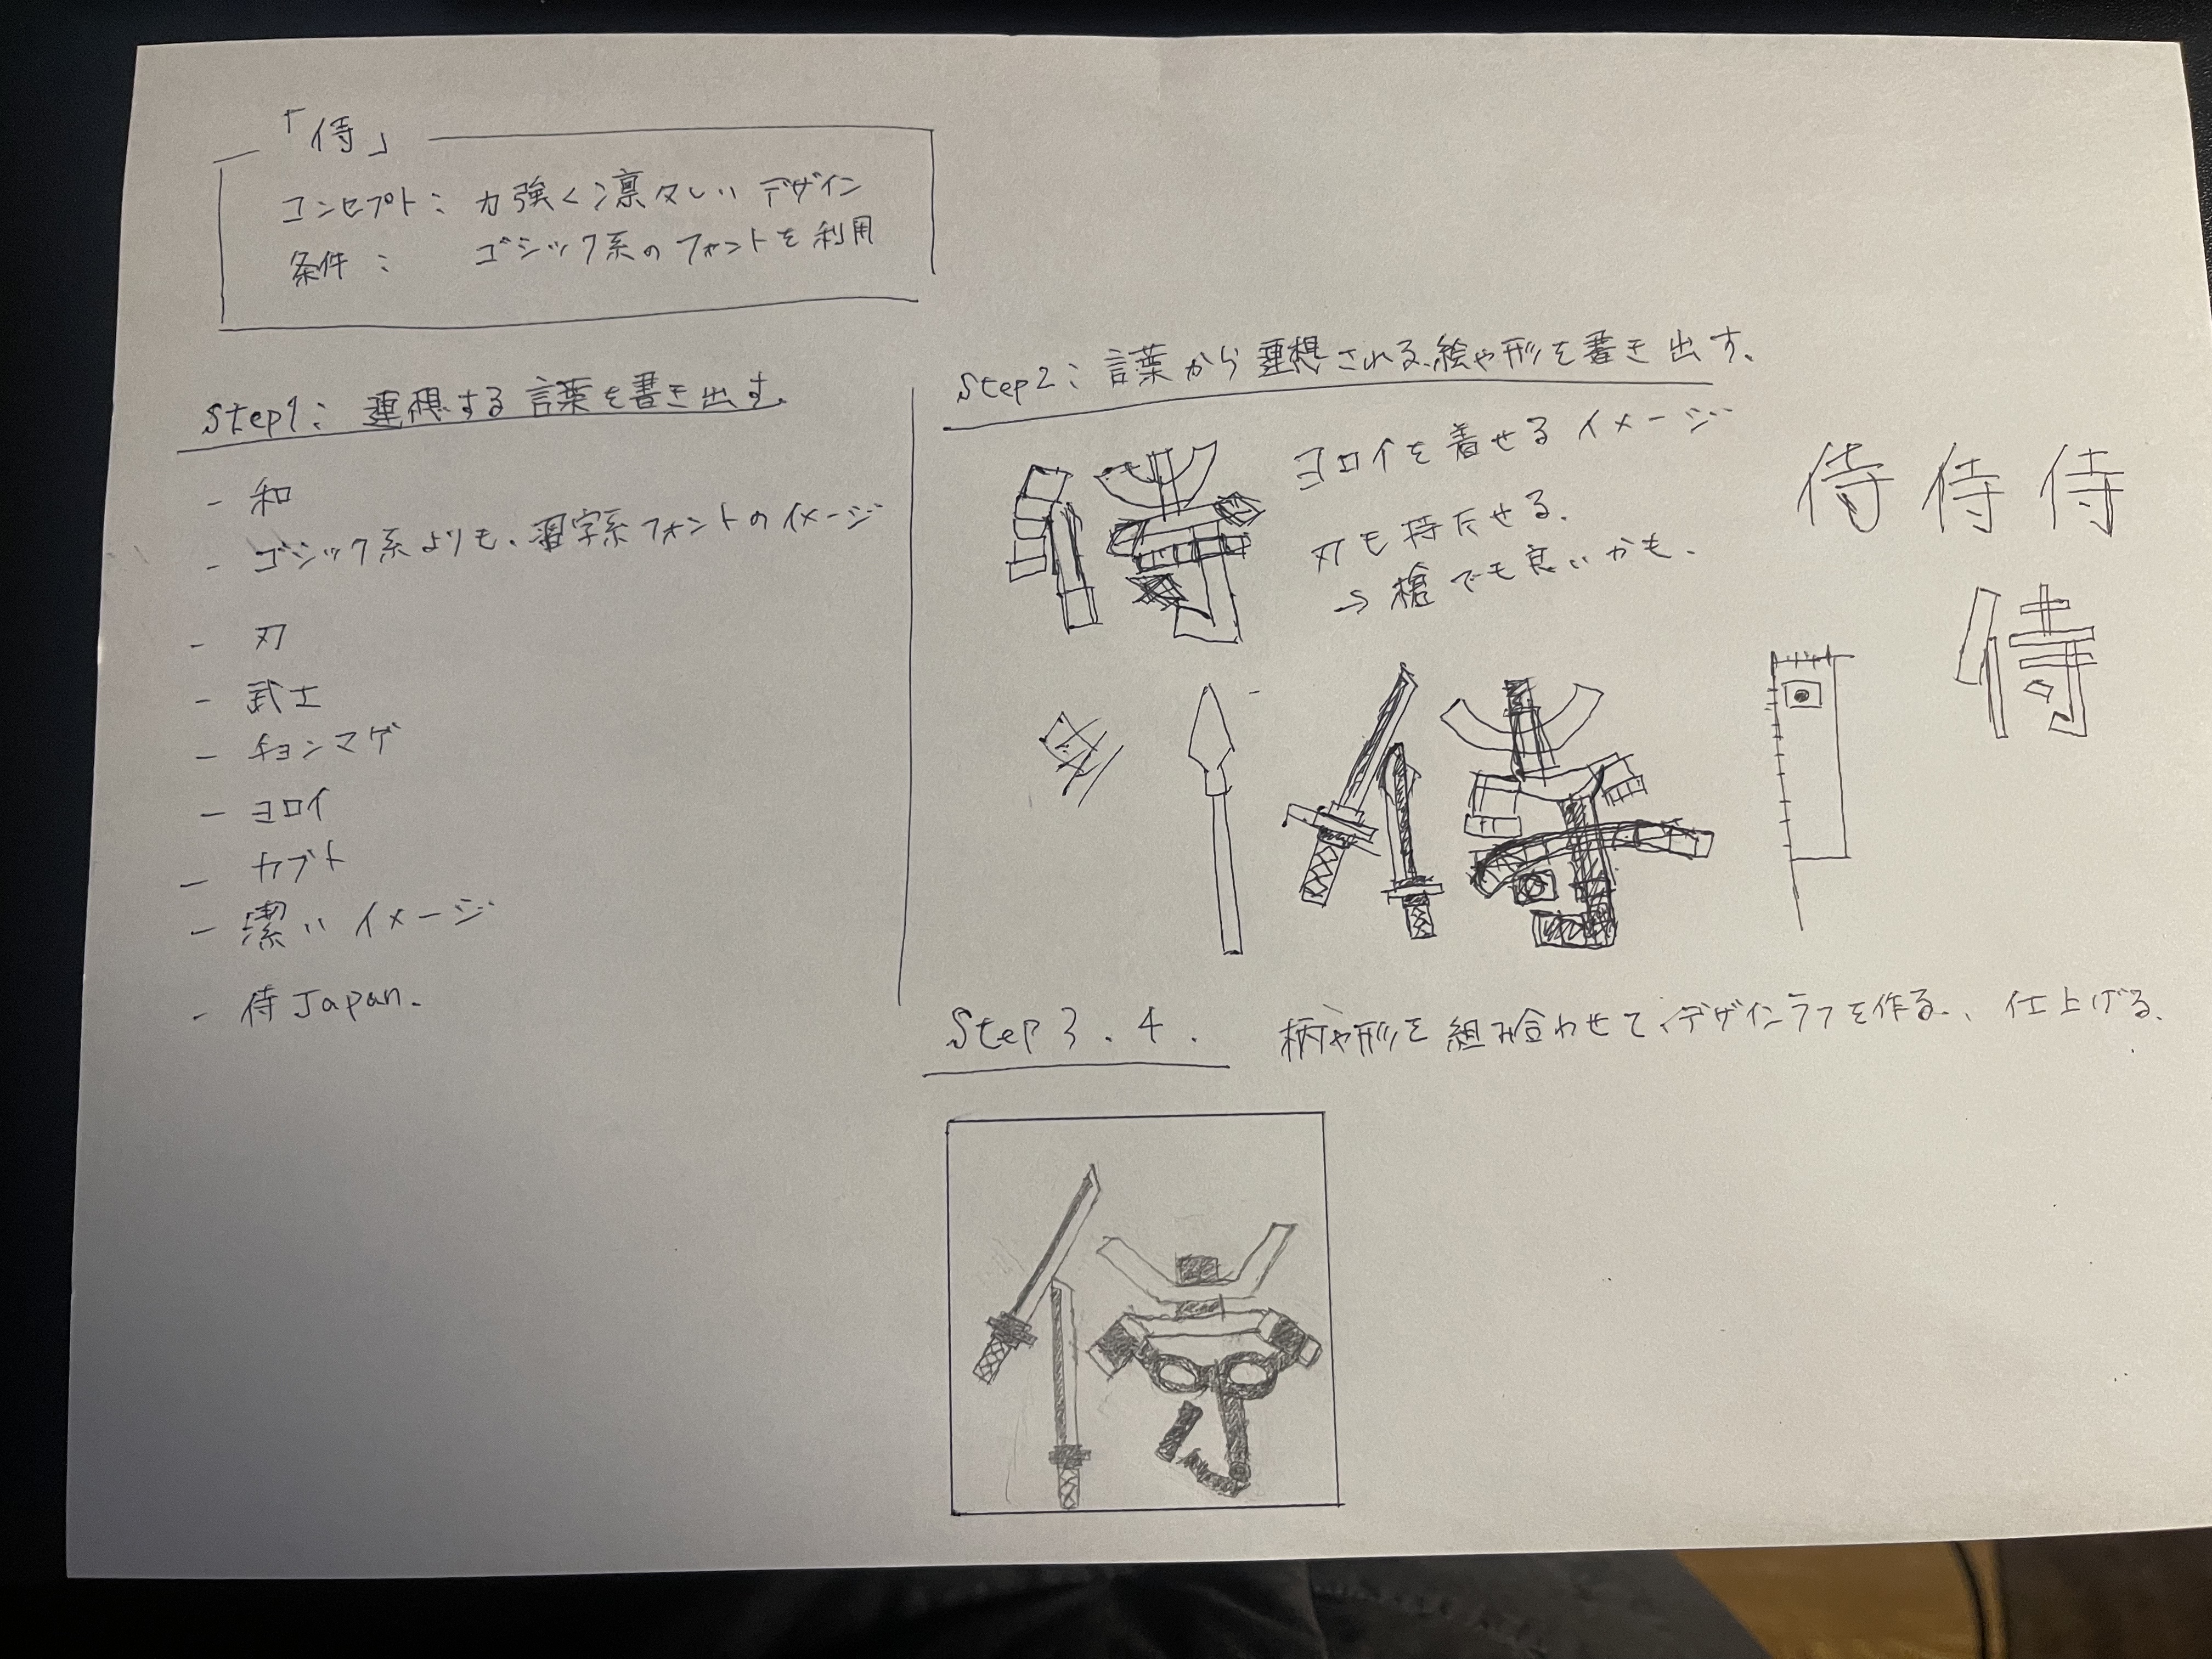 「侍」
コンセプト： 力強く凛々しいデザイン
条件： ゴシック系のフォントを利用
Step1： 連想する言葉を書き出す。
- 和
- ゴシック系よりも、習字系フォントのイメージ
- 刃
- 武士
- チョンマゲ
- ヨロイ
- カブト
- 潔いイメージ
- 侍Japan.
Step2： 言葉から連想される絵や形を書き出す。
ヨロイを着せるイメージ
刃も持たせる.
→ 槍でも良いかも.
侍 侍 侍
侍
Step 3 . 4 . 柄や形を組み合わせて、デザインラフを作る、仕上げる.